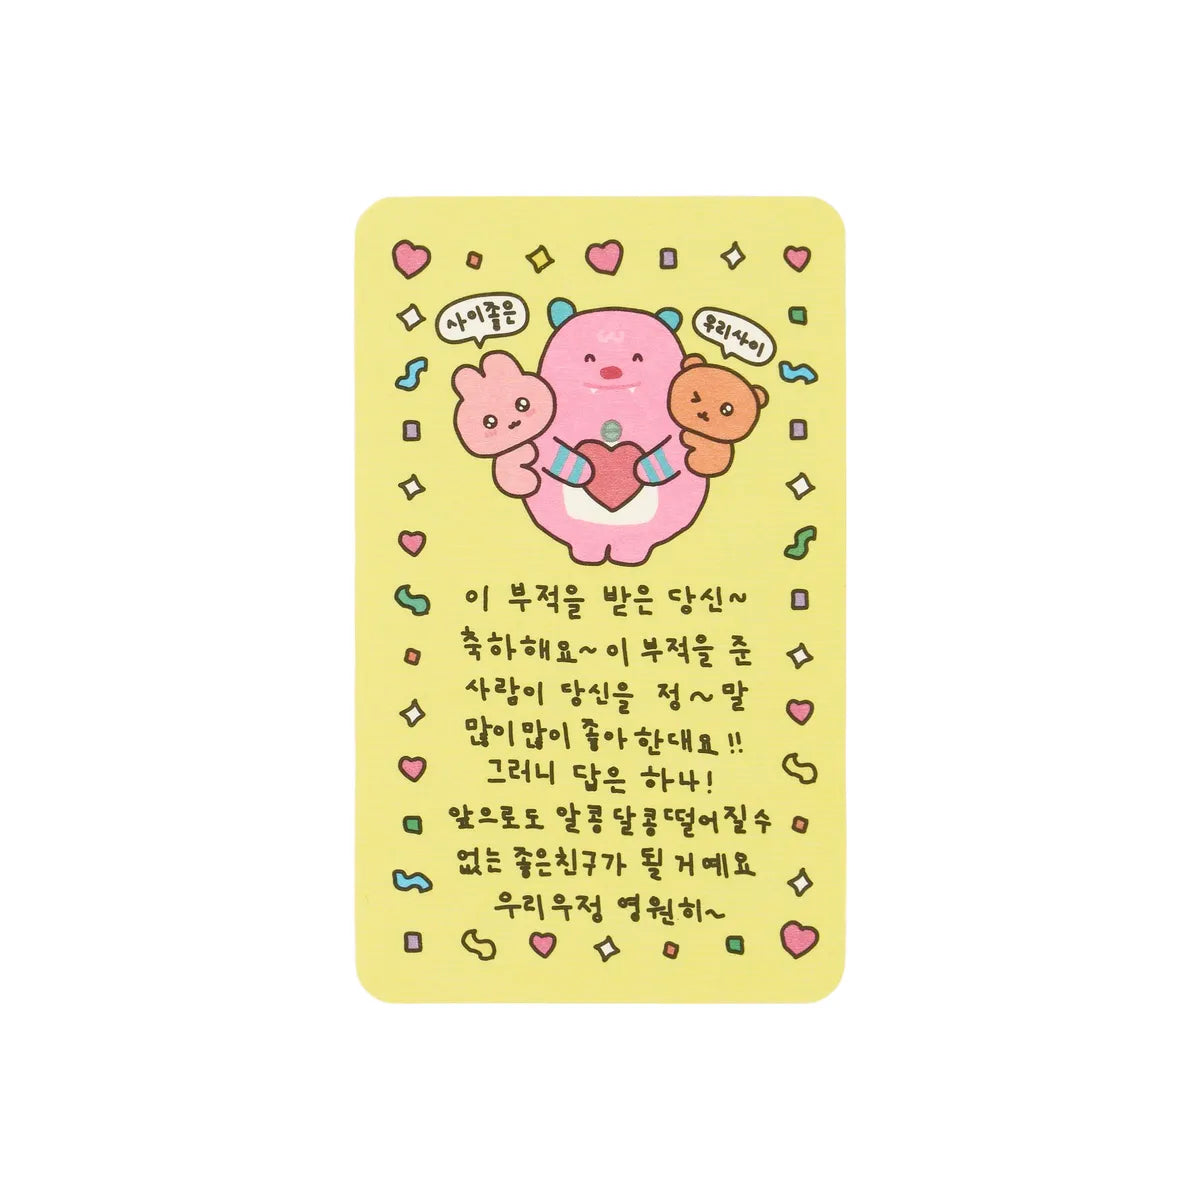 사이좋은
우리사이
이 부적을 받은 당신~
축하해요~이 부적을 준
사람이 당신을 정~말
많이많이 좋아한대요!!
그러니 답은 하나!
앞으로도 알콩달콩떨어질수
없는 좋은친구가 될 거예요
우리우정 영원히~